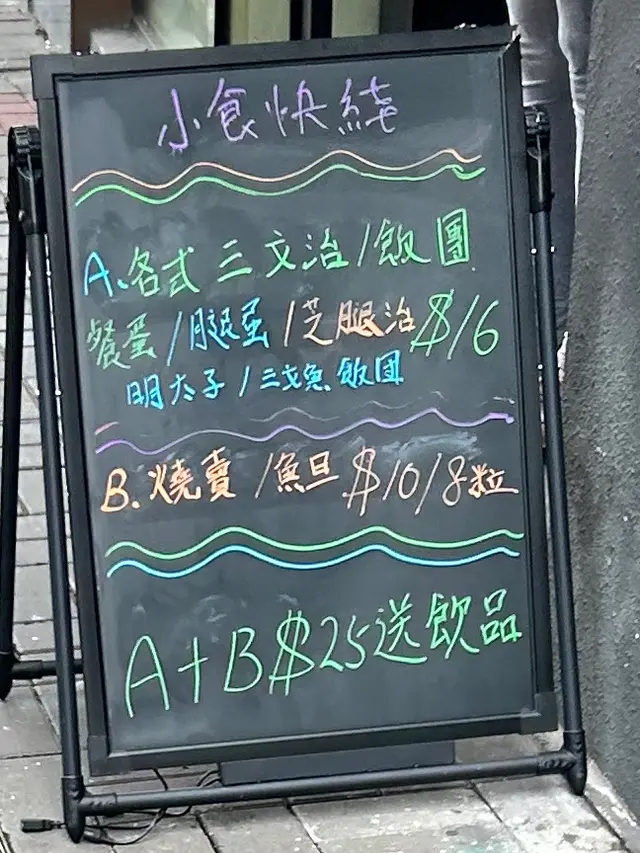 小食快綫
A.各式三文治/飯團
餐蛋/腿蛋/芝腿治$16
明太子/三文魚飯团
B.燒賣/魚旦$10/8粒
A+B$25送飲品